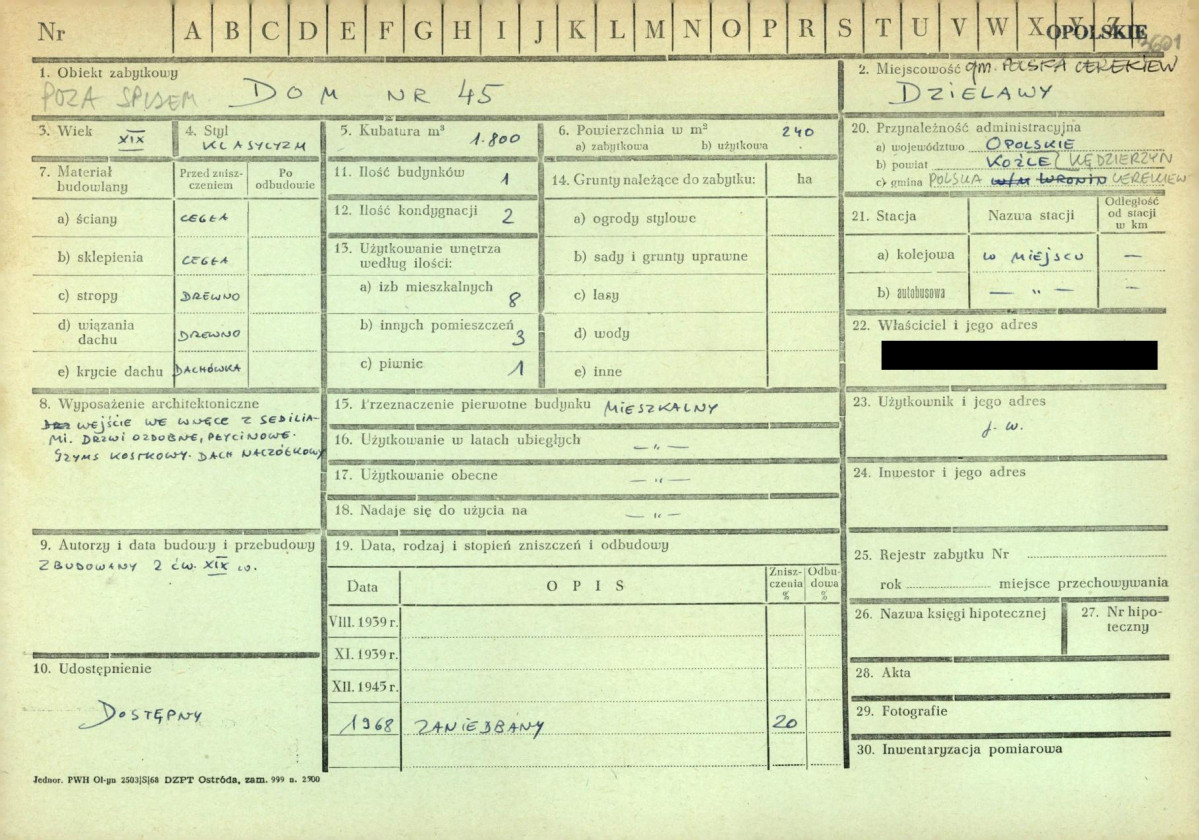 Nr A B C D E F G H I J K L M N O P R S T U V W X Y Z OPOLSKIE 3601
1. Obiekt zabytkowy
POZA SPISEM DOM NR 45
2. Miejscowość gm. POLSKA CEREKIEW
DZIELAWY
3. Wiek
XIX
4. Styl
KLASYCYZM
5. Kubatura m³ 1.800
6. Powierzchnia w m² 240
a) zabytkowa b) użytkowa
7. Materiał budowlany
Przed zniszczeniem
Po odbudowie
a) ściany CEGŁA
b) sklepienia CEGŁA
c) stropy DREWNO
d) wiązania dachu DREWNO
e) krycie dachu DACHÓWKA
8. Wyposażenie architektoniczne
WEJŚCIE WE WNĘCE Z SEDILIA-
MI. DRZWI OZDOBNE, PŁYCINOWE.
GZYMS KOSTKOWY. DACH NACZÓŁKOWY
9. Autorzy i data budowy i przebudowy
ZBUDOWANY 2 ĆW. XIX W.
10. Udostępnienie
DOSTĘPNY
11. Ilość budynków 1
12. Ilość kondygnacji 2
13. Użytkowanie wnętrza
według ilości:
a) izb mieszkalnych 8
b) innych pomieszczeń 3
c) piwnic 1
14. Grunty należące do zabytku: ha
a) ogrody stylowe
b) sady i grunty uprawne
c) lasy
d) wody
e) inne
15. Przeznaczenie pierwotne budynku MIESZKALNY
16. Użytkowanie w latach ubiegłych — „ —
17. Użytkowanie obecne — „ —
18. Nadaje się do użycia na — „ —
19. Data, rodzaj i stopień zniszczeń i odbudowy
Data OPIS Zniszczenia % Odbudowa %
VIII. 1939 r.
XI. 1939 r.
XII. 1945 r.
1968 ZANIEDBANY 20
20. Przynależność administracyjna
a) województwo OPOLSKIE
b) powiat KOŹLE / KĘDZIERZYN
c) gmina POLSKA W/M WRONIN CEREKIEW
21. Stacja Nazwa stacji Odległość od stacji w km
a) kolejowa W MIEJSCU —
b) autobusowa — „ — —
22. Właściciel i jego adres
23. Użytkownik i jego adres
j. w.
24. Inwestor i jego adres
25. Rejestr zabytku Nr
rok miejsce przechowywania
26. Nazwa księgi hipotecznej
27. Nr hipoteczny
28. Akta
29. Fotografie
30. Inwentaryzacja pomiarowa
Jednor. PWH Ol-yn 2503|S|68 DZPT Ostróda, zam. 999 n. 2700